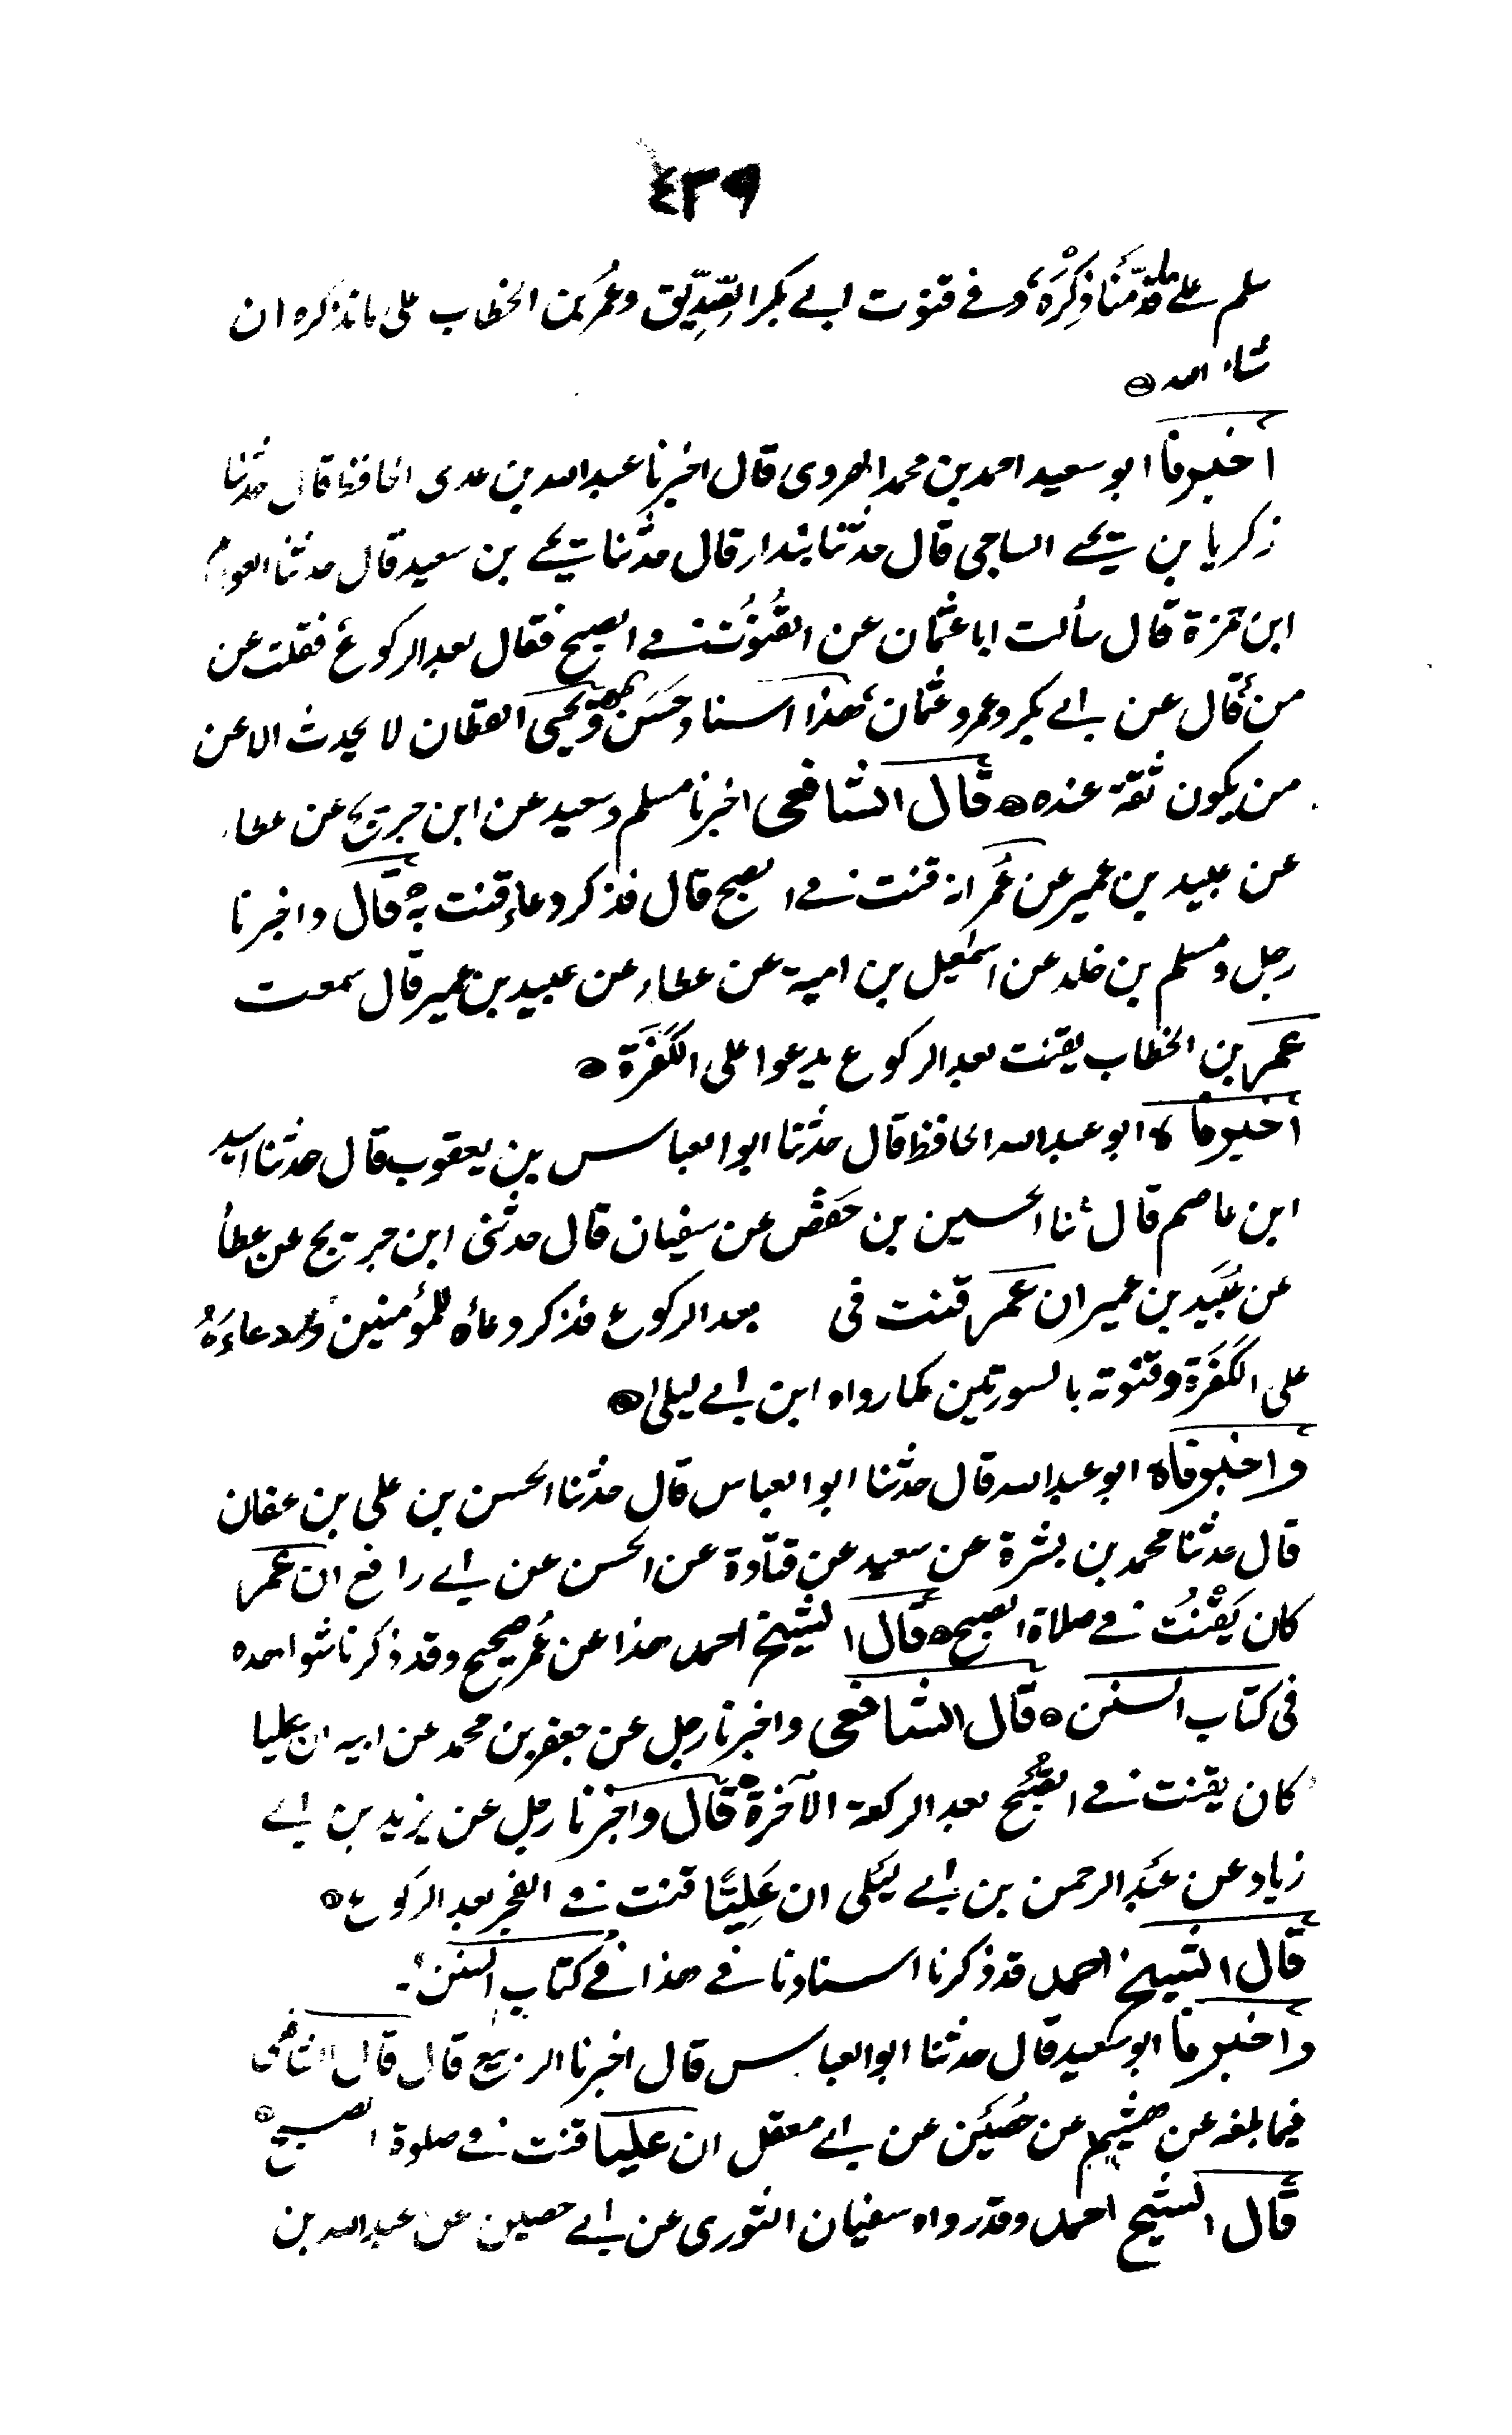 ٤٣٩
سلم على ما قدّمنا ذِكْرَهُ وفي قنوت ابي بكر الصِّدِّيق وعُمَر بن الخطاب على ما نذكره ان
شاء الله
أخبرنا ابو سعيد احمد بن محمد الهروى قال اخبرنا عبد الله بن عدى الحافظ قال حدثنا
زكريا بن يحيى الساجى قال حدثنا بندار قال حدثنا يحيى بن سعيد قال حدثنا العوام
ابن حمزة قال سألت ابا عثمان عن القُنُوت في الصبح فقال بعد الركوع فقلت عن
من قال عن ابي بكر وعمر وعثمان هذا اسناد حَسَن ويحيى القطان لا يحدث الا عن
من يكون ثقة عنده قال الشافعى اخبرنا مسلم وسعيد عن ابن جريج عن عطاء
عن عبيد بن عمير عن عُمر انه قنت في الصبح قال فذكر دعاءٍ قنت به قال واخبرنا
رجل ومسلم بن خلد عن اسمٰعيل بن امية عن عطاء عن عبيد بن عمير قال سمعت
عمر بن الخطاب يقنت بعد الركوع يدعوا على الكَفَرَة
أخبرناه ابو عبد الله الحافظ قال حدثنا ابو العباس بن يعقوب قال حدثنا اسيد
ابن عاصم قال ثنا الحسين بن حَفْص عن سفيان قال حدثنى ابن جريج عن عطأ
عن عُبَيد بن عمير ان عمر قنت فى بعد الركوع فذكر دعاه للمؤمنين ودعاءَهُ
على الكَفَرَة وقنوته بالسورتين كما رواه ابن ابي ليلى
واخبرناه ابو عبد الله قال حدثنا ابو العباس قال حدثنا الحسن بن على بن عفان
قال حدثنا محمد بن بشرة عن سعيد عن قتادة عن الحسن عن ابي رافع ان عمر
كان يَقْنُت في صلاة الصبح قال الشيخ احمد هذا عن عُمر صحيح وقد ذكرنا شواهده
فى كتاب السنن قال الشافعى واخبرنا رجل عن جعفر بن محمد عن ابيه ان عليا
كان يقنت في الصُّبْح بعد الركعة الآخرة قال واخبرنا رجل عن يزيد بن ابي
زياد عن عَبد الرحمن بن ابي لَيلى ان عَلِيًّا قنت في الفجر بعد الركوع
قال الشيخ احمد قد ذكرنا اسنادنا في هذا في كتاب السنن
واخبرنا ابو سعيد قال حدثنا ابو العباس قال اخبرنا الربيع قال قال الشافعى
فيما بلغه عن هشيم عن حُصَين عن ابي معقل ان عليا قنت في صلوة الصبح
قال الشيخ احمد وقد رواه سفيان الثورى عن ابي حصين عن عبد الله بن